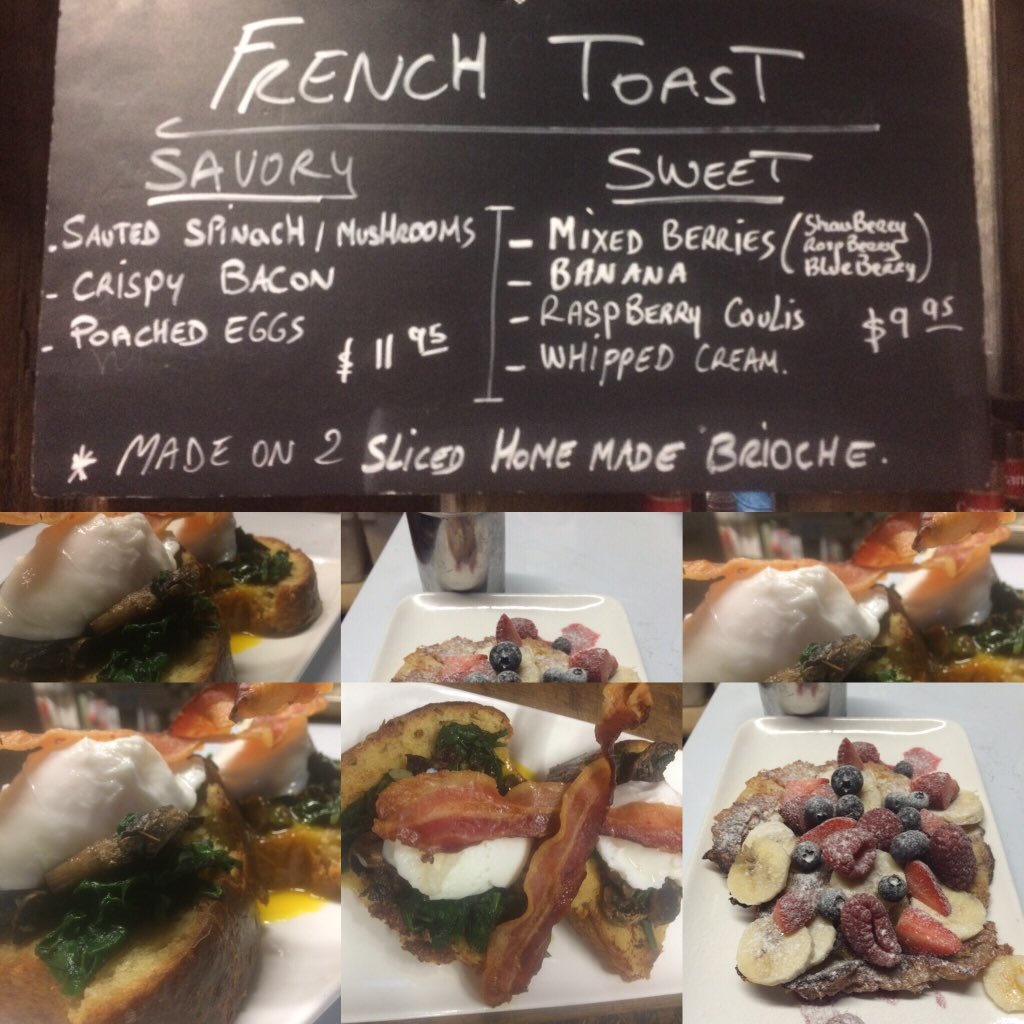 FRENCH TOAST
SAVORY
. SAUTED SPINACH / MUSHROOMS
- CRISPY BACON
- POACHED EGGS
$ 11 95
SWEET
- MIXED BERRIES (StrawBerry
RaspBerry
BlueBerry)
- BANANA
- RASPBERRY COULIS
$9 95
- WHIPPED CREAM.
* MADE ON 2 SLICED HOME MADE BRIOCHE.